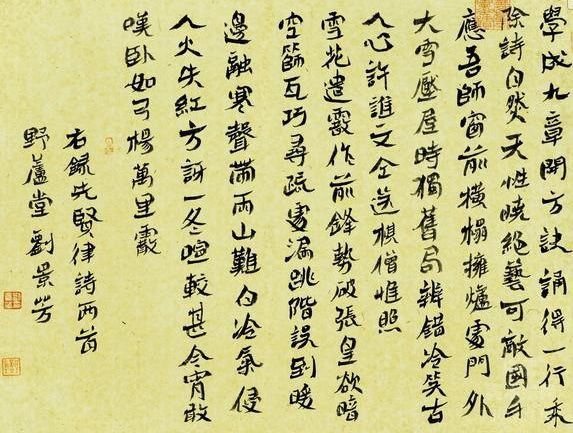 學成九章開方訣誦得一行乘
除詩自然天性曉絕藝可敵國手
應吾師窗前橫榻擁爐處門外
大雪壓屋時獨舊局辨錯冷笑古
人心許誰文仝送棋僧惟照
雪花遣霰作前鋒勢破張皇欲暗
空篩瓦巧尋疏處漏跳階誤到暖
邊融寒聲帶雨山難白冷氣侵
人火失紅方訝一冬暄較甚今宵敢
嘆臥如弓楊萬里霰
右錄先賢律詩兩首
野蘆堂劉景芳